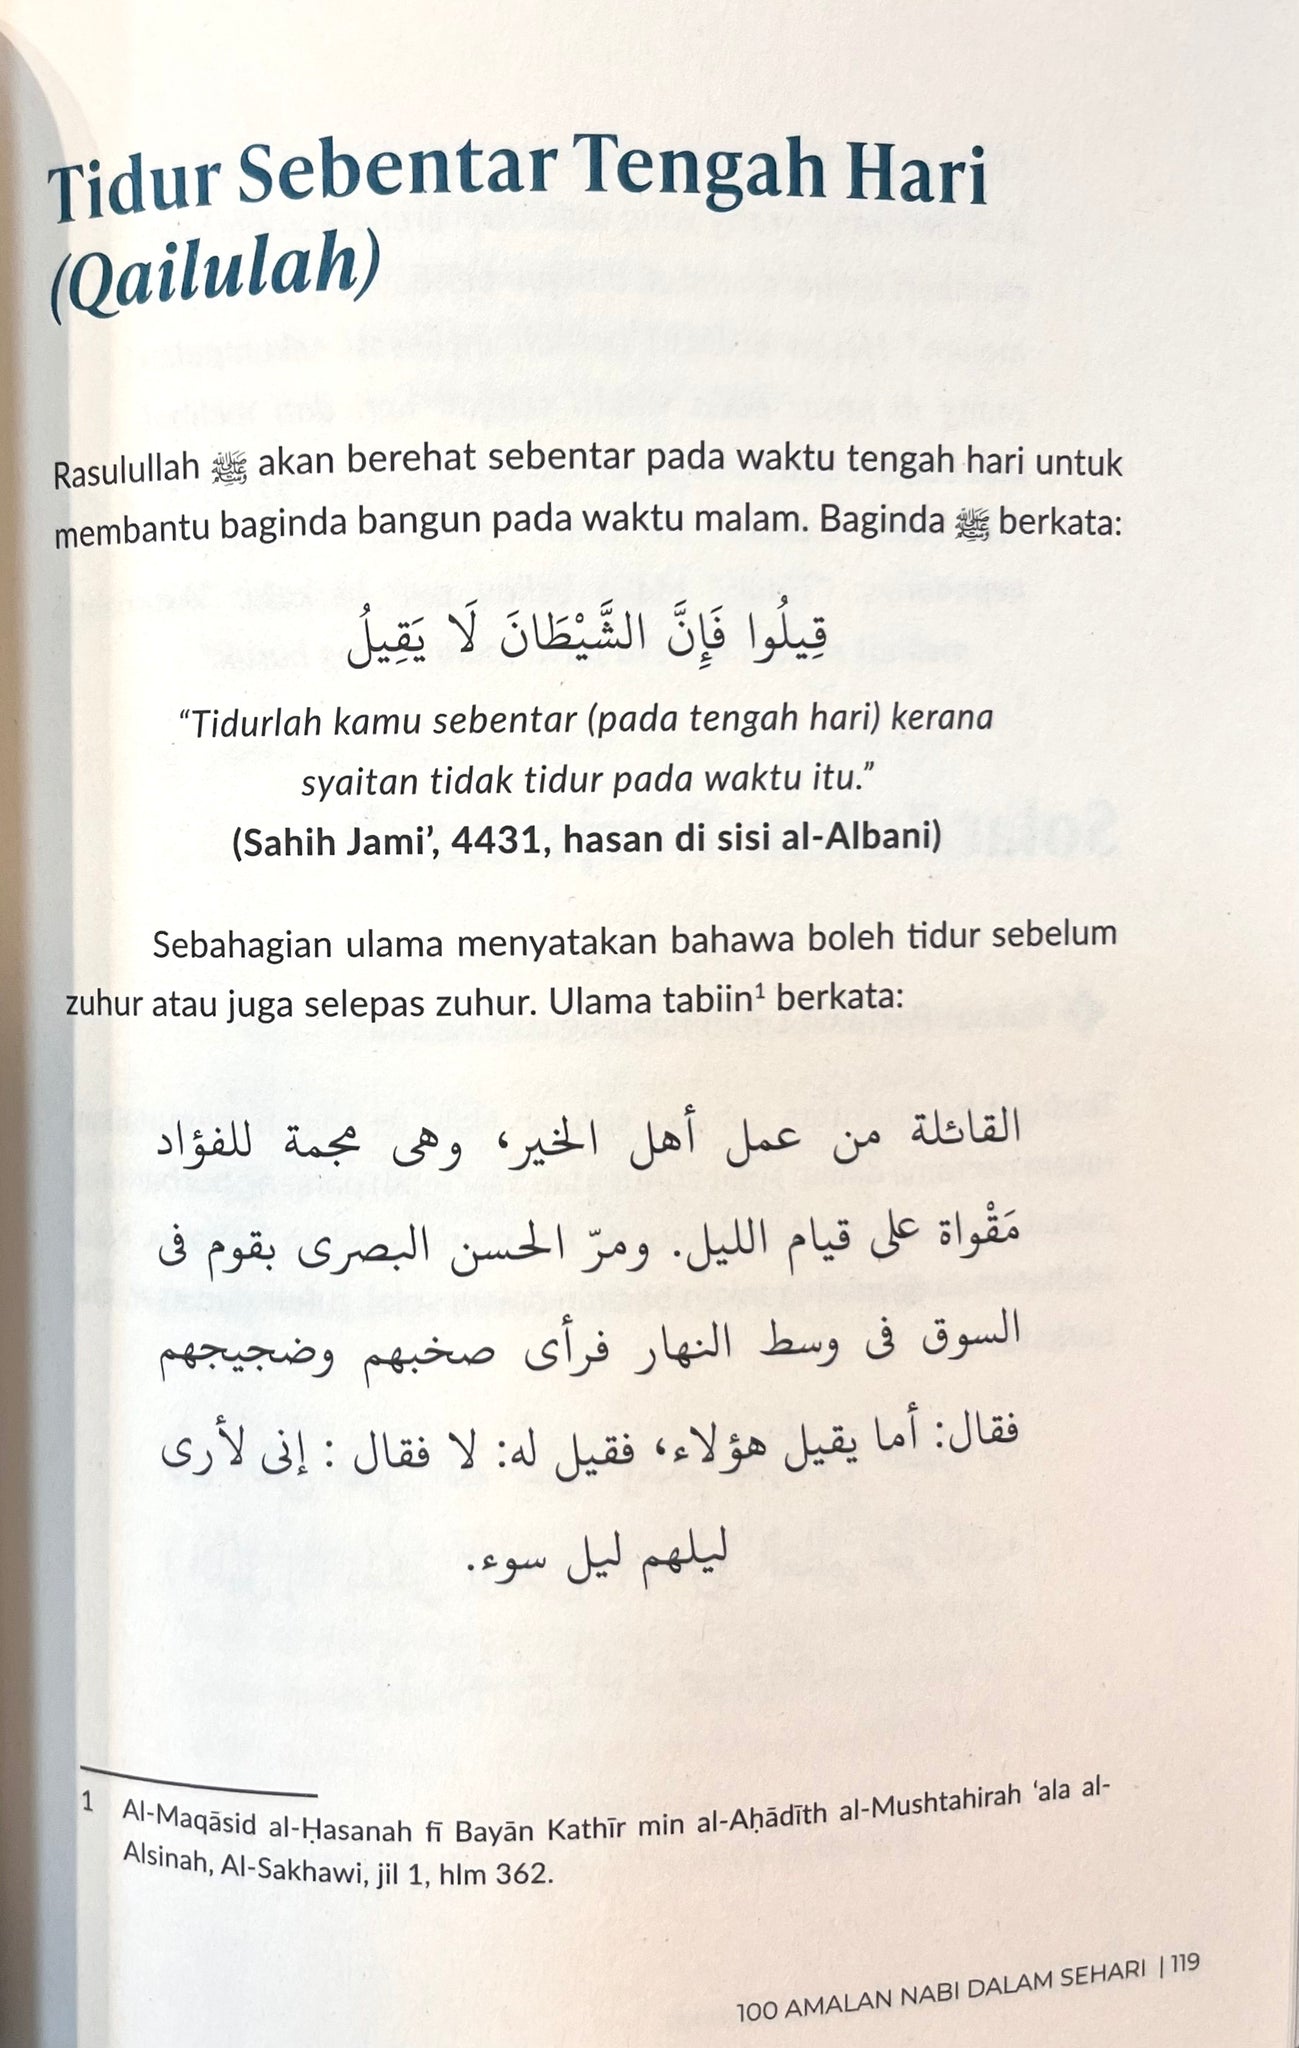 Tidur Sebentar Tengah Hari
(Qailulah)
Rasulullah ﷺ akan berehat sebentar pada waktu tengah hari untuk
membantu baginda bangun pada waktu malam. Baginda ﷺ berkata:
قِيلُوا فَإِنَّ الشَّيْطَانَ لَا يَقِيلُ
“Tidurlah kamu sebentar (pada tengah hari) kerana
syaitan tidak tidur pada waktu itu.”
(Sahih Jami’, 4431, hasan di sisi al-Albani)
Sebahagian ulama menyatakan bahawa boleh tidur sebelum
zuhur atau juga selepas zuhur. Ulama tabiin¹ berkata:
القائلة من عمل أهل الخير، وهى مجمة للفؤاد
مَقْواة على قيام الليل. ومرّ الحسن البصرى بقوم فى
السوق فى وسط النهار فرأى صخبهم وضجيجهم
فقال: أما يقيل هؤلاء، فقيل له: لا فقال : إنى لأرى
ليلهم ليل سوء.
1 Al-Maqāsid al-Ḥasanah fī Bayān Kathīr min al-Aḥādīth al-Mushtahirah ‘ala al-
Alsinah, Al-Sakhawi, jil 1, hlm 362.
100 AMALAN NABI DALAM SEHARI | 119